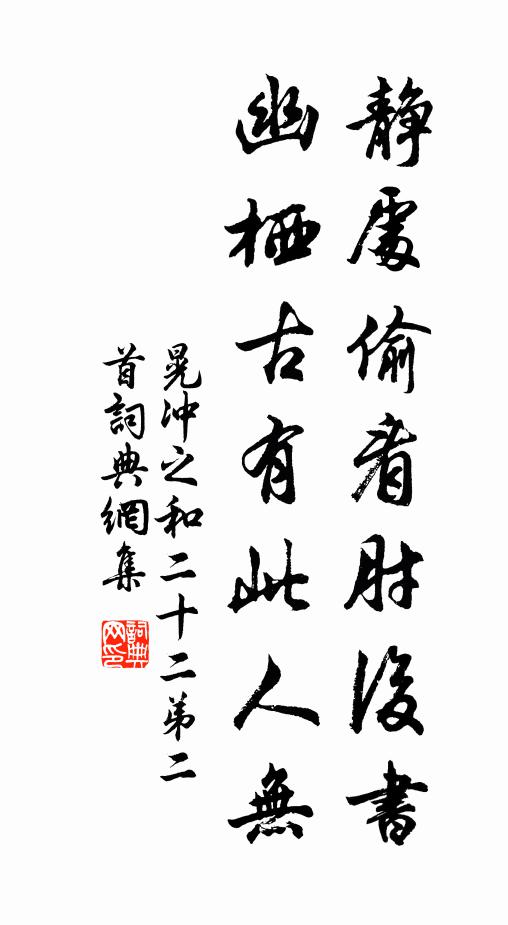 靜處偷看肘後書
幽栖古有此人無
晁沖之和二十二弟二
首詞典網集
詞典網印